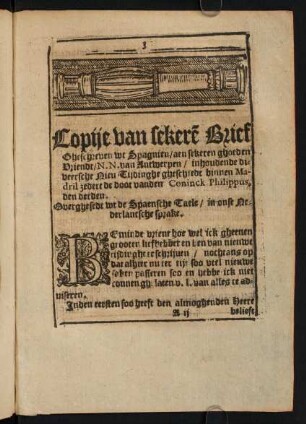 3
Copije van sekerē Brief
Gheschreven wt Spagnien / aen sekeren ghoeden
Vriendt / N.N. van Antwerpen / inhoudende di-
veersche Nieu Tijdinghe gheschiedt binnen Ma-
dril zedert de doot vanden Coninck Philippus,
den derden.
Overghesedt wt de Spaensche Taele / in onse Ne-
derlantsche sprake.
BEminde vrient hoe wel ick gheenen
grooten liefhebber en ben van nieuwe
tijdinghe te schrijven / nochtans op
dat alhier nu ter tijt soo veel nieuwe
saken passeren soo en hebbe ick niet
connen gh laten v. l. van alles te ad-
viseren.
Inden eersten soo heeft den almoghenden Heere
A ij belieft